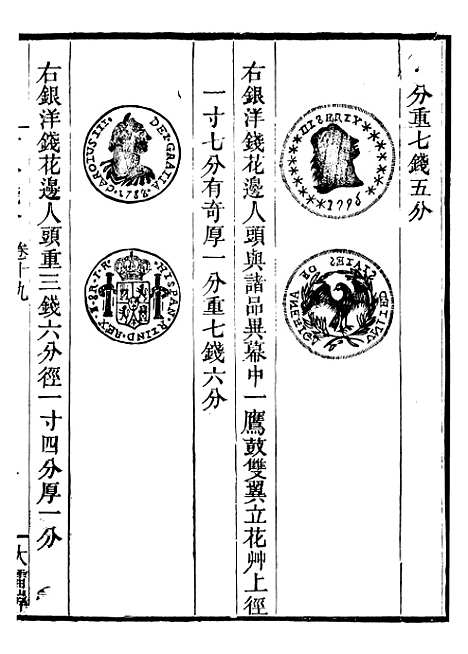 分重七錢五分
LIBERTY
1796
UNITED STATES OF AMERICA
右銀洋錢花邊人頭與諸品異幕中一鷹鼓雙翼立花艸上徑
一寸七分有奇厚一分重七錢六分
CAROLUS III DEI GRATIA 1788
HISPAN ET IND REX
右銀洋錢花邊人頭重三錢六分徑一寸四分厚一分
卷十九